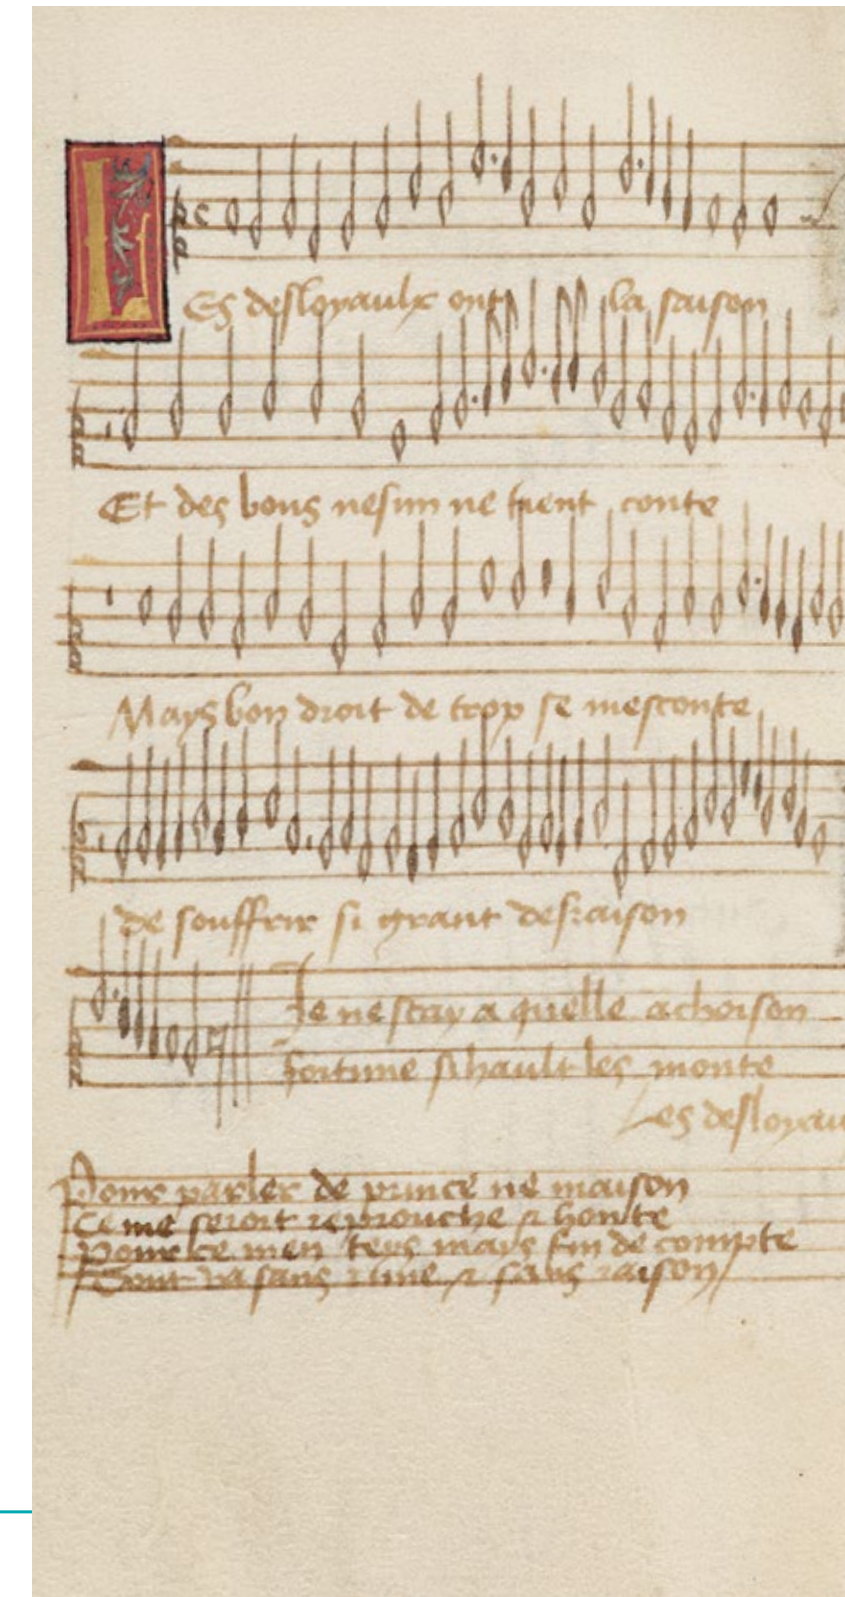 LEs desloyaulx ont la saison
Et des bons nesun ne tient conte
Mays bon droit de trop se mesconte
de souffrir si grant desraison
Je ne scay a quelle achoison
fortune si hault les monte
Les desloyau
Pour parler de prince ne maison
Ce me seroit reprouche & honte
Pour ce men teys mays fin de compte
Tout va sans rime & sans raison